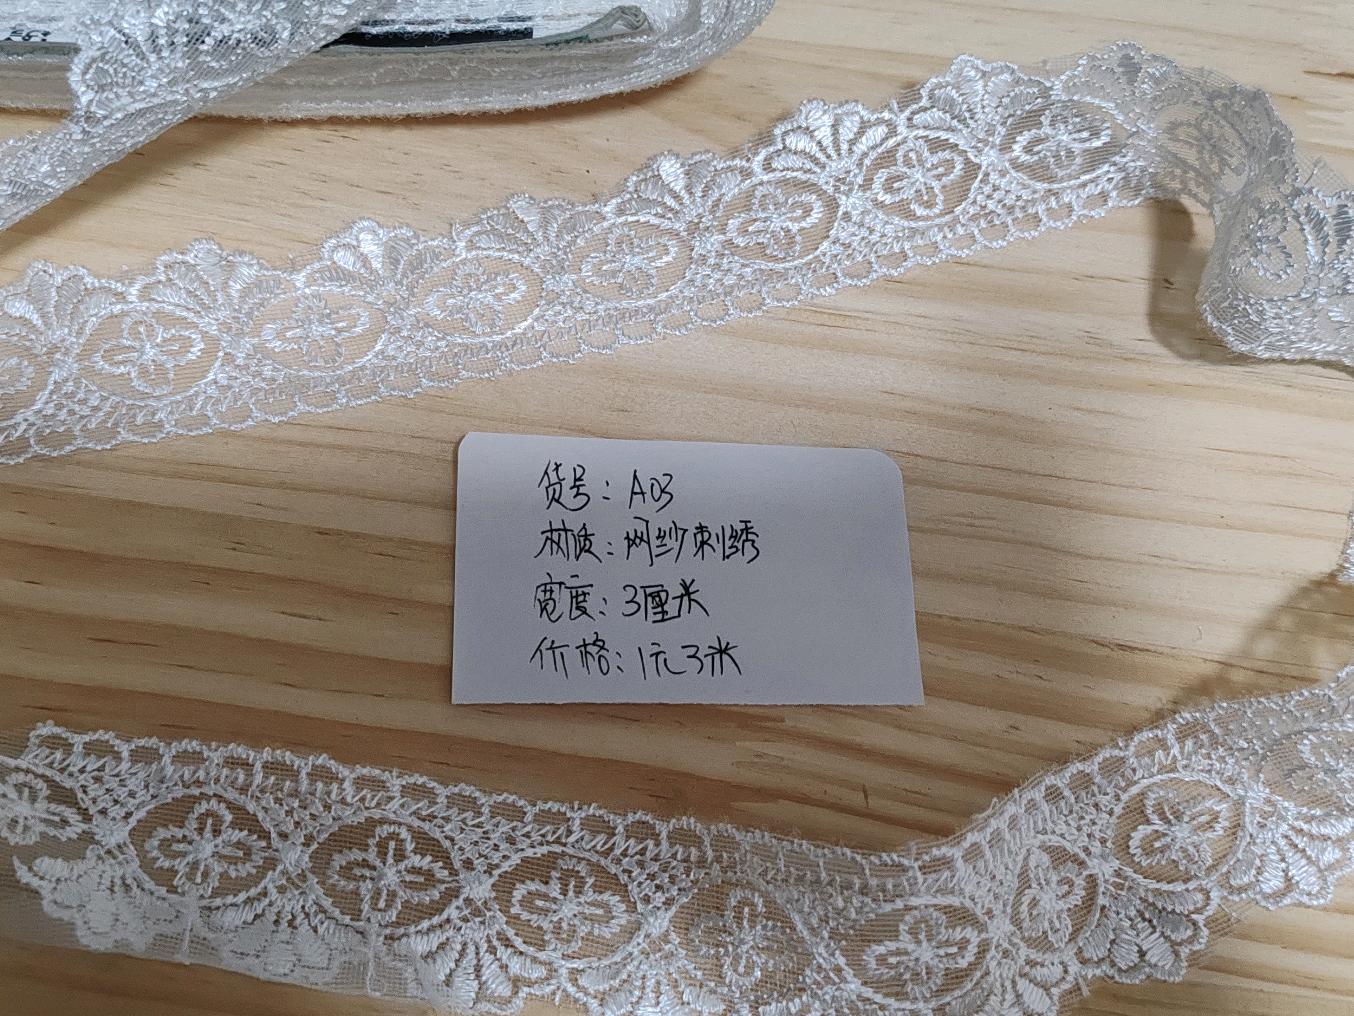 货号：A03
材质：网纱刺绣
宽度：3厘米
价格：1元3米